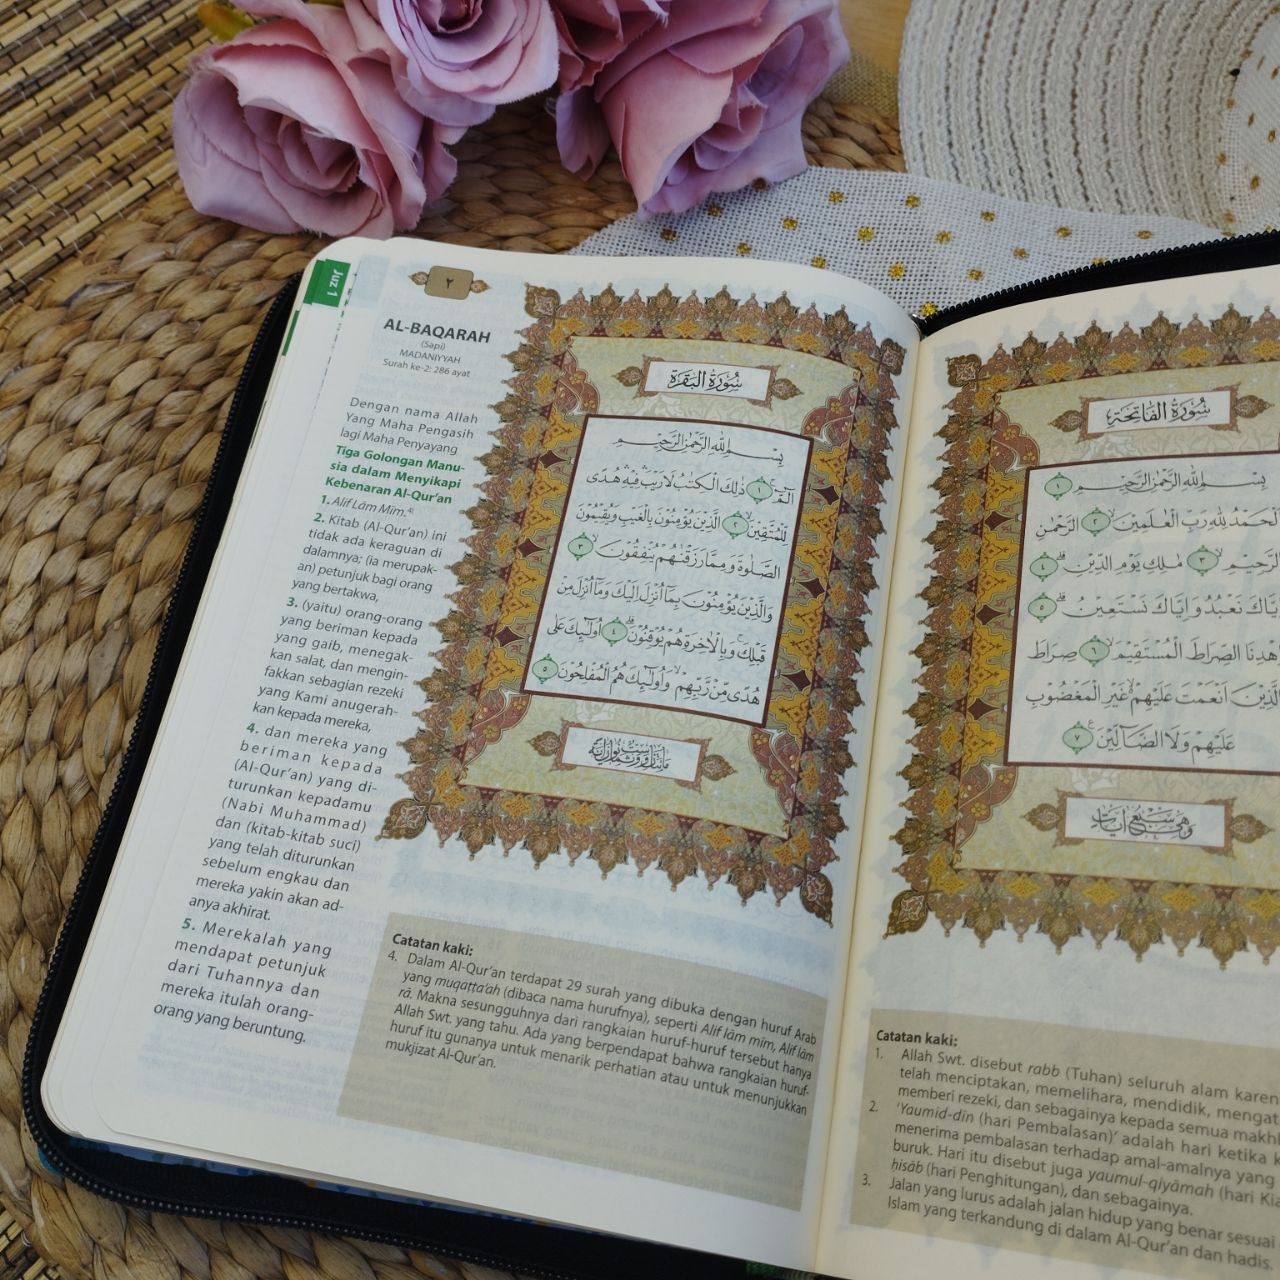 Juz 1
٢
AL-BAQARAH
(Sapi)
MADANIYYAH
Surah ke-2: 286 ayat
Dengan nama Allah
Yang Maha Pengasih
lagi Maha Penyayang
Tiga Golongan Manu-
sia dalam Menyikapi
Kebenaran Al-Qur'an
1. Alif Lām Mīm.4)
2. Kitab (Al-Qur'an) ini
tidak ada keraguan di
dalamnya; (ia merupak-
an) petunjuk bagi orang
yang bertakwa,
3. (yaitu) orang-orang
yang beriman kepada
yang gaib, menegak-
kan salat, dan mengin-
fakkan sebagian rezeki
yang Kami anugerah-
kan kepada mereka,
4. dan mereka yang
beriman kepada
(Al-Qur'an) yang di-
turunkan kepadamu
(Nabi Muhammad)
dan (kitab-kitab suci)
yang telah diturunkan
sebelum engkau dan
mereka yakin akan ad-
anya akhirat.
5. Merekalah yang
mendapat petunjuk
dari Tuhannya dan
mereka itulah orang-
orang yang beruntung.
سُوْرَةُ الْبَقَرَةِ
بِسْمِ اللّٰهِ الرَّحْمٰنِ الرَّحِيْمِ
الۤمّۤ ۚ ١ ذٰلِكَ الْكِتٰبُ لَا رَيْبَ ۛ فِيْهِ ۛ هُدًى
لِّلْمُتَّقِيْنَۙ ٢ الَّذِيْنَ يُؤْمِنُوْنَ بِالْغَيْبِ وَيُقِيْمُوْنَ
الصَّلٰوةَ وَمِمَّا رَزَقْنٰهُمْ يُنْفِقُوْنَۙ ٣
وَالَّذِيْنَ يُؤْمِنُوْنَ بِمَآ اُنْزِلَ اِلَيْكَ وَمَآ اُنْزِلَ مِنْ
قَبْلِكَ ۚ وَبِالْاٰخِرَةِ هُمْ يُوْقِنُوْنَۗ ٤ اُولٰۤىِٕكَ عَلٰى
هُدًى مِّنْ رَّبِّهِمْ ۙ وَاُولٰۤىِٕكَ هُمُ الْمُفْلِحُوْنَ ٥
Catatan kaki:
4. Dalam Al-Qur'an terdapat 29 surah yang dibuka dengan huruf Arab
yang muqaṭṭa'ah (dibaca nama hurufnya), seperti Alif lām mīm, Alif lām
rā. Makna sesungguhnya dari rangkaian huruf-huruf tersebut hanya
Allah Swt. yang tahu. Ada yang berpendapat bahwa rangkaian huruf-
huruf itu gunanya untuk menarik perhatian atau untuk menunjukkan
mukjizat Al-Qur'an.
سُوْرَةُ الْفَاتِحَةِ
بِسْمِ اللّٰهِ الرَّحْمٰنِ الرَّحِيْمِ ١
اَلْحَمْدُ لِلّٰهِ رَبِّ الْعٰلَمِيْنَۙ ٢ الرَّحْمٰنِ
الرَّحِيْمِۙ ٣ مٰلِكِ يَوْمِ الدِّيْنِۗ ٤
اِيَّاكَ نَعْبُدُ وَاِيَّاكَ نَسْتَعِيْنُۗ ٥
اِهْدِنَا الصِّرَاطَ الْمُسْتَقِيْمَۙ ٦ صِرَاطَ
الَّذِيْنَ اَنْعَمْتَ عَلَيْهِمْ ەۙ غَيْرِ الْمَغْضُوْبِ
عَلَيْهِمْ وَلَا الضَّاۤلِّيْنَࣖ ٧
وَهِيَ سَبْعُ اٰيَاتٍ
Catatan kaki:
1. Allah Swt. disebut rabb (Tuhan) seluruh alam karen
telah menciptakan, memelihara, mendidik, mengat
memberi rezeki, dan sebagainya kepada semua makhl
2. 'Yaumid-dīn (hari Pembalasan)' adalah hari ketika k
menerima pembalasan terhadap amal-amalnya yang
buruk. Hari itu disebut juga yaumul-qiyāmah (hari Kia
ḥisāb (hari Penghitungan), dan sebagainya.
3. Jalan yang lurus adalah jalan hidup yang benar sesuai
Islam yang terkandung di dalam Al-Qur'an dan hadis.